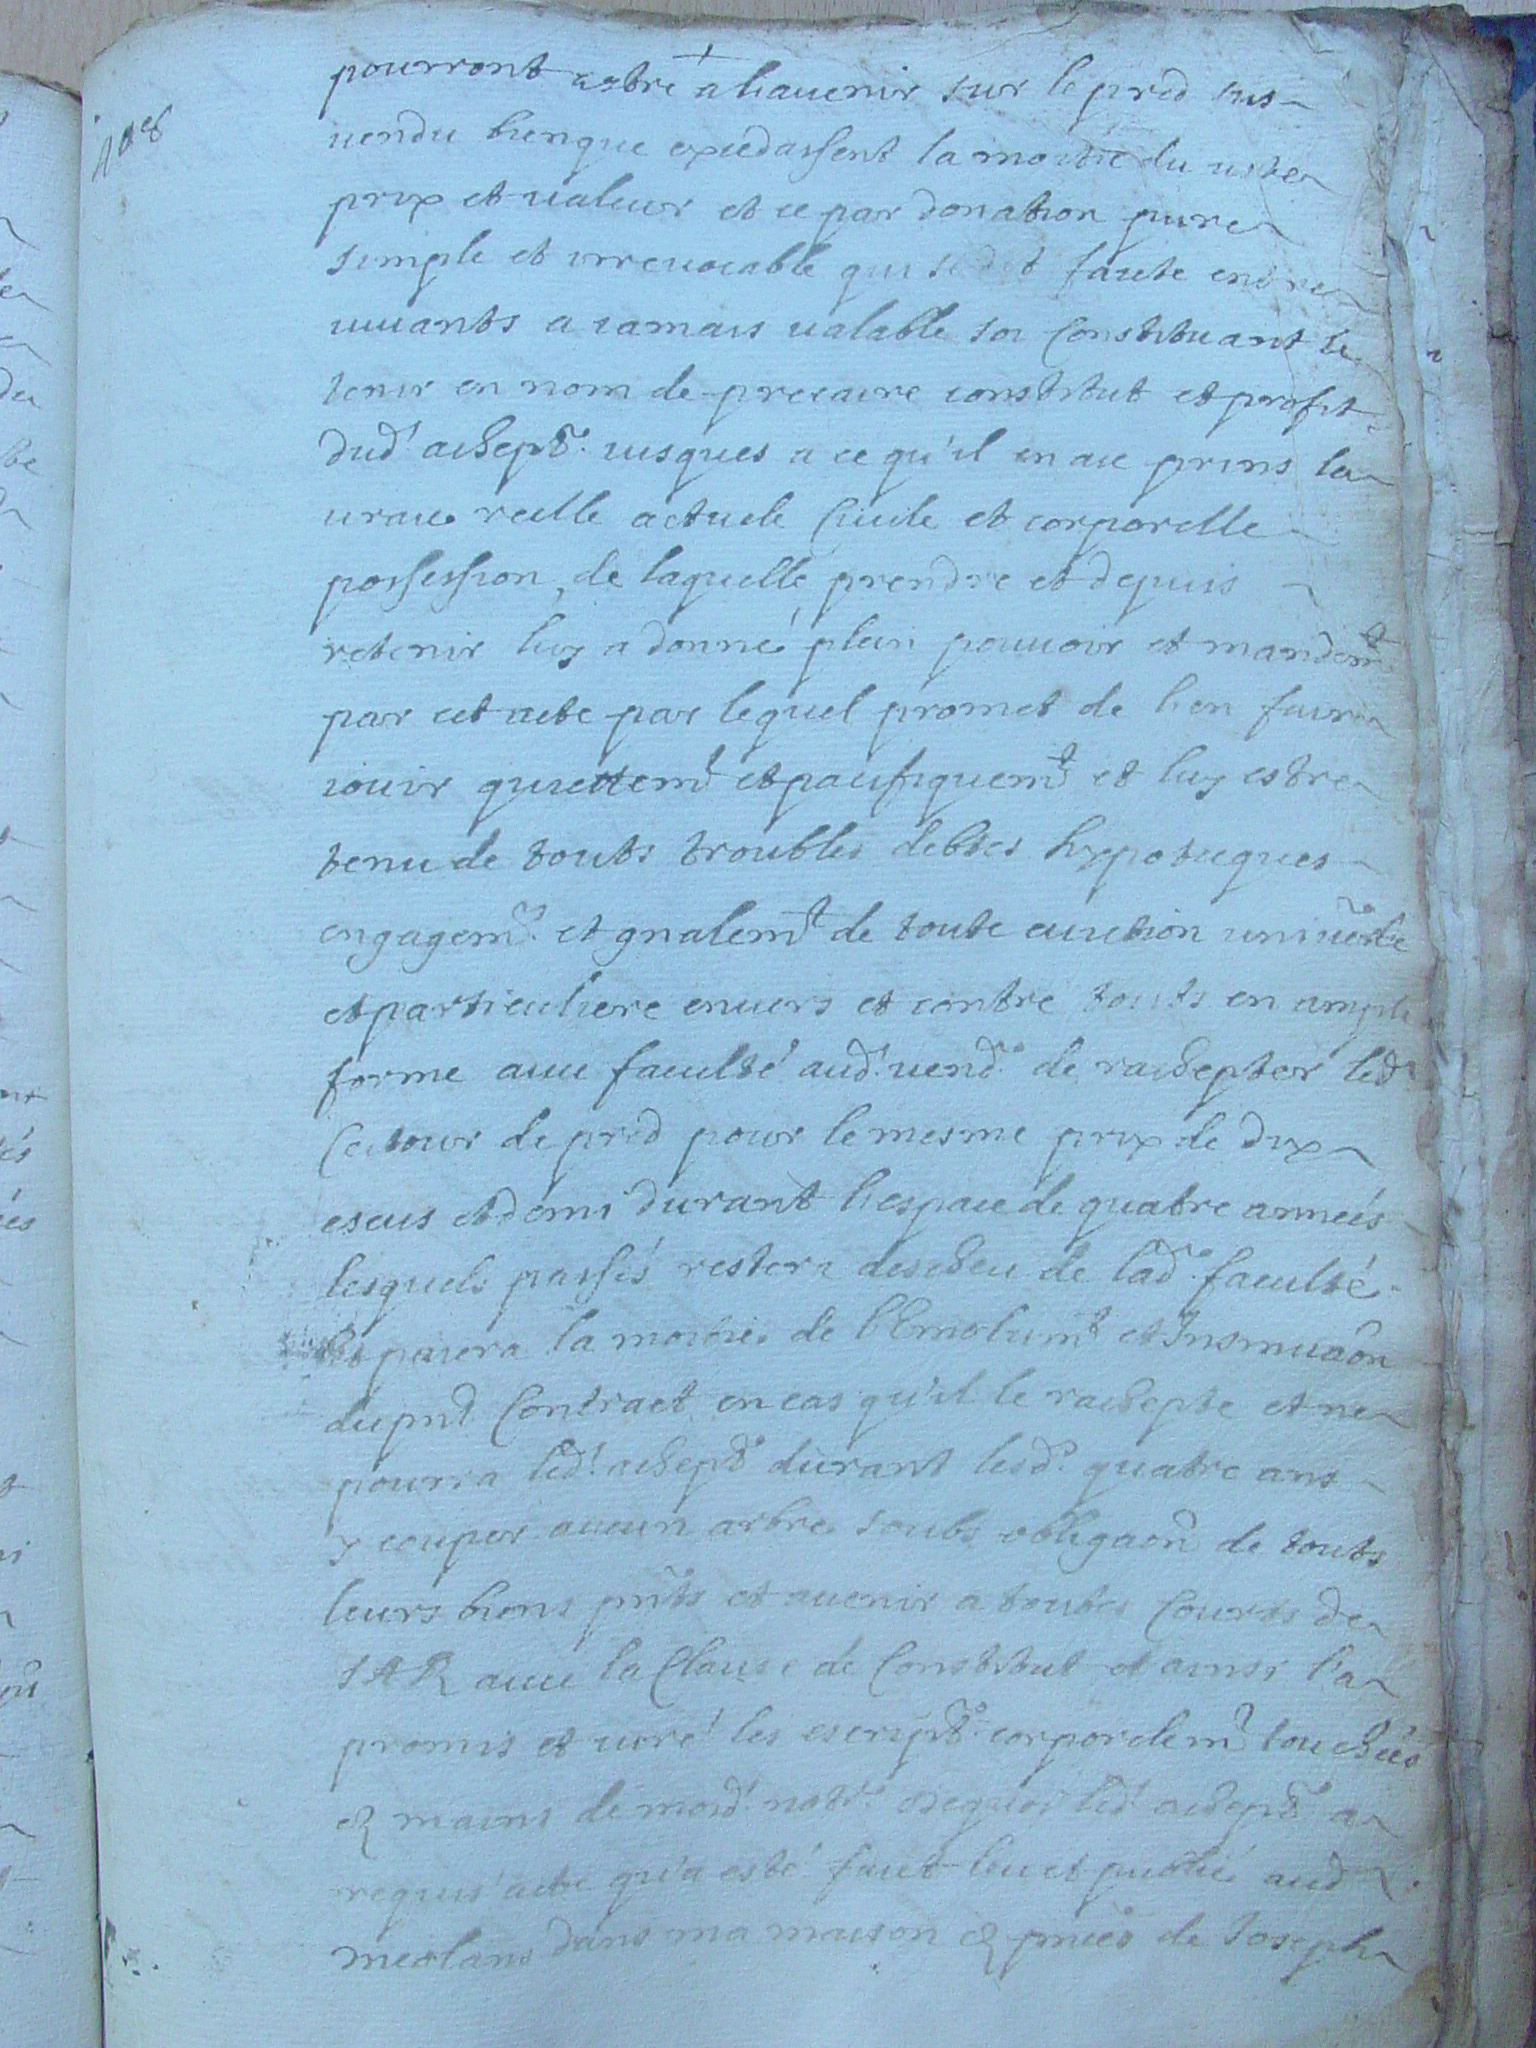 pourront estre a l'auenir sur le pred sus
uendu bienque excedassent la moitie du iuste
prix et ualeur et ce par donation pure
simple et irreuocable qui se dit faicte entre
uiuants a iamais ualable soi Constituant le
tenir en nom de precaire constitut et profit
dud.t achept.r iusques a ce qu'il en aie prins la
uraie reelle actuele Ciuile et corporelle
possession, de laquelle prendre et depuis
retenir luy a donné plein pouuoir et mandem.t
par cet acte par lequel promet de l'en faire
iouir quiettem.t et pacifiquem.t et luy estre
tenu de touts troubles debtes hypoteques
engagem.s et gnalem.t de toute euiction uniuer.le
et particuliere enuers et contre touts en ample
forme auec faculté aud.t uend.r de rachepter led.
Cestour de pred pour le mesme prix de dix
escus et demi durant l'espace de quatre anneés
lesquels passés restera descheu de lad.e faculté
Et paiera la moitie de l'Emolum.t et Insinuaon
du pnt Contract en cas qu'il le rachepte et ne
pourra led.t achept.r durant lesd.s quatre ans
y couper aucun arbre soubs obligaon de touts
leurs biens pnts et auenir a toutes Courts de
SAR auec la Clause de Constitut et ainsi l'a
promis et iuré les escript.s corporelem.t touchées
es mains de moid.t not.re dequoi led.t achept.r a
requis acte qu'a esté faict leu et publié aud.
meolans dans ma maison es pnces de Joseph